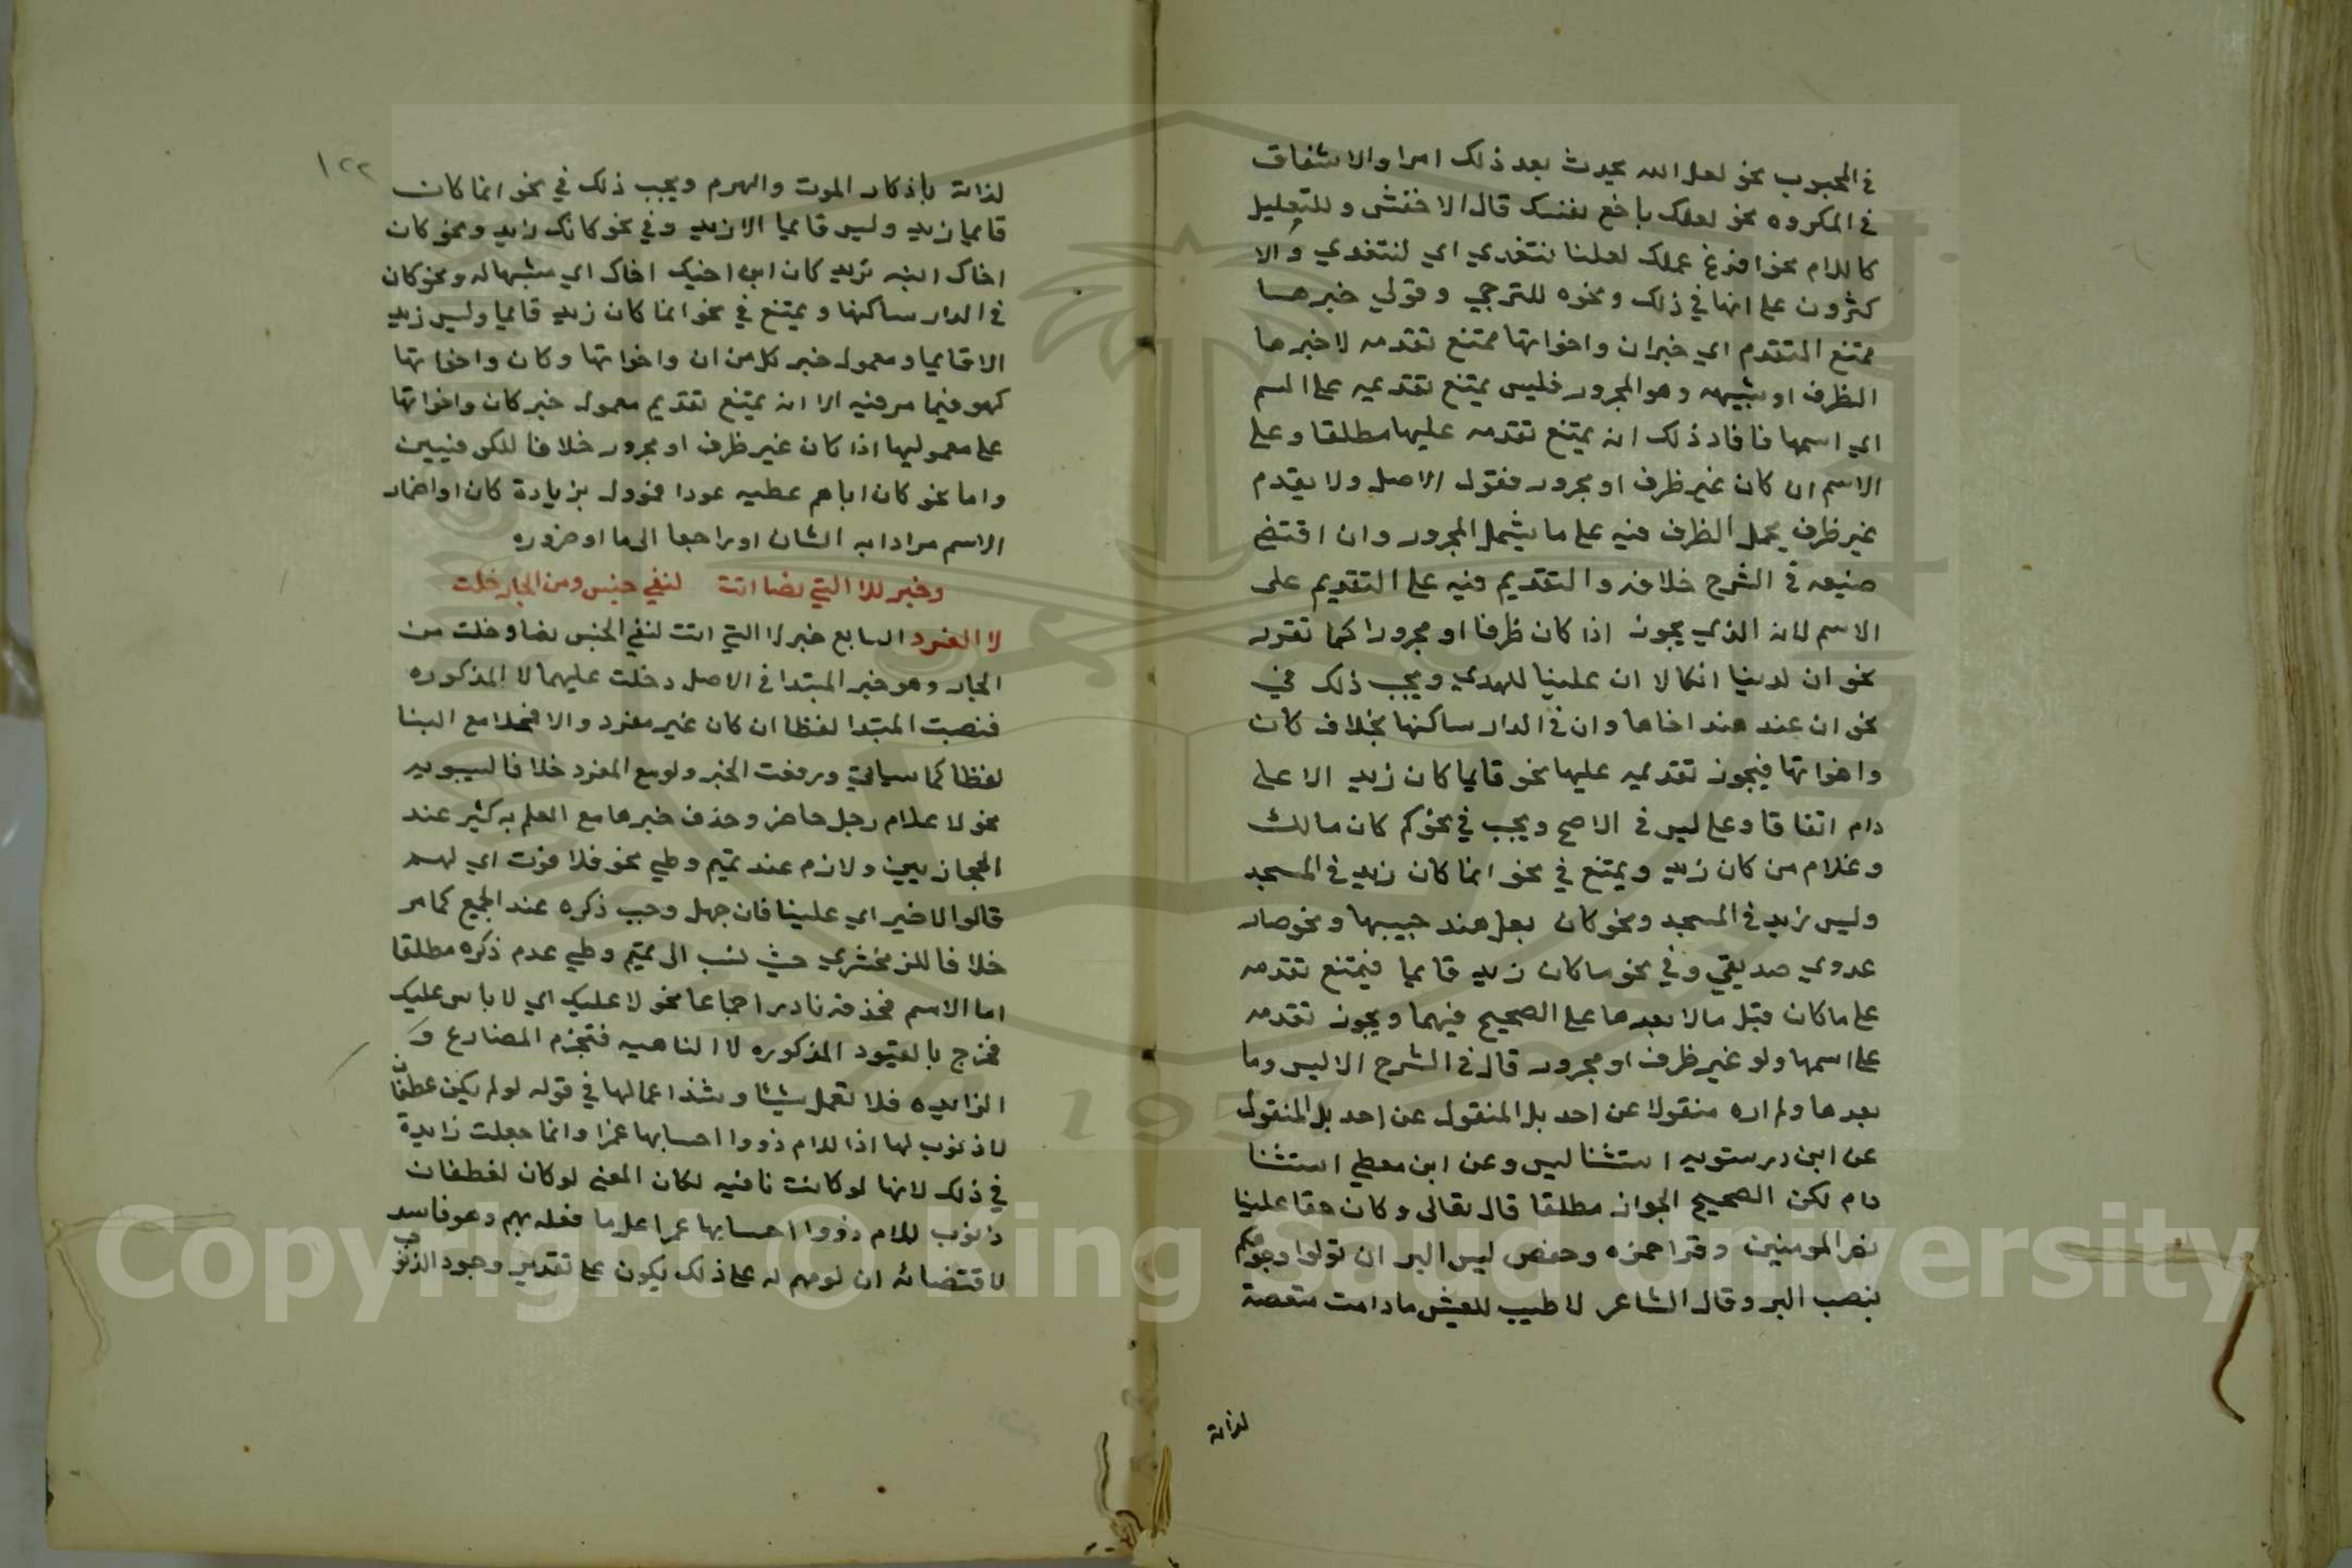 في المحبوب نحو لعل الله يحدث بعد ذلك امرا والاشفاق
في المكروه نحو لعلك باخع نفسك قال الاخفش وللتعليل
كاللام نحو افرغ عملك لعلنا نتغدي اي لنتغدي والا
كثرون على انها في ذلك ونحوه للترجي وقولي خبرهسا
ممتنع التقدم اي خبران واخواتها ممتنع تقدمه لا خبرها
الظرف او شبهه وهو المجرور فليس يمتنع تقديمه على السم
اي اسمها فافاد ذلك انه يمتنع تقدمه عليها مطلقا وعلى
الاسم ان كان غير ظرف او مجرور فقول الاصل ولا يقدم
غير ظرف يحمل الظرف فيه على ما يشمل المجرور وان اقتضى
صنيعه في الشرح خلافه والتقديم فيه على التقديم على
الاسم لانه الذي يجوز اذا كان ظرفا او مجرورا كما تقرر
نحو ان لدينا انكالا ان علينا للهدي ويجب ذلك في
نحو ان عند هند اخاها وان في الدار ساكنها بخلاف كان
واخواتها فيجوز تقديمه عليها نحو قايما كان زيد الا على
دام اتفاقا وعلى ليس في الاصح ويجب في نحو كم كان مالك
وغلام من كان زيد ويمتنع في نحو انما كان زيد في المسجد
وليس زيد في المسجد ونحو كان بعل هند حبيبها ونحو صار
عدوي صديقي وفي نحو ما كان زيد قايما فيمتنع تقدمه
على ما كان قبل ما لا بعدها على الصحيح فيهما ويجوز تقدمه
على اسمها ولو غير ظرف او مجرور قال في الشرح الا ليس وما
بعدها ولم اره منقولا عن احد بل المنقول عن احد بل المنقول
عن ابن درستويه استثنا ليس وعن ابن معطي استثنا
دام لكن الصحيح الجواز مطلقا قال تعالى وكان حقا علينا
نصر المومنين وقرا حمزه وحفص ليس البر ان تولوا وجوهكم
بنصب البر وقال الشاعر لا طيب للعيش ما دامت منغصة
لذاته
١٢٢
لذاته باذكار الموت والهرم ويجب ذلك في نحو انما كان
قايما زيد وليس قايما الا زيد وفي نحو كانك زيد ونحو كان
اخاك ابنه تريد كان ابن اخيك اخاك اي مشبها له ونحو كان
في الدار ساكنها ويمتنع في نحو انما كان زيد قايما وليس زيد
الا قايما ومعمول خبر كل من ان واخواتها وكان واخواتها
كهو فيما مر فيه الا انه يمتنع تقديم معمول خبر كان واخواتها
على معموليها اذا كان غير ظرف او مجرور خلافا للكوفيين
واما نحو كان اباهم عطيه عودا فموول بزيادة كان او اضمار
الاسم مرادا به الشان او راجعا الى ما او ضروره
وخبر للا التي نصا اتت لنفي جنس ومن الجار خلت
لا المفرد السابع خبر لا التي اتت لنفي الجنس نصا وخلت من
الجار وهو خبر المبتدا في الاصل دخلت عليهما لا المذكوره
فنصبت المبتدا لفظا ان كان غير مفرد والا فمحلا مع البنا
لفظا كما سياتي ورفعت الخبر ولو مع المفرد خلافا لسيبويه
نحو لا غلام رجل حاضر وحذف خبرها مع العلم به كثير عند
الحجازيين ولازم عند تميم وطي نحو فلا فوت اي لهم
قالوا لا ضير اي علينا فان جهل وجب ذكره عند الجميع كما مر
خلافا للزمخشري حيث نسب الى تميم وطي عدم ذكره مطلقا
اما الاسم فحذفه نادر اجماعا نحو لا عليك اي لا باس عليك
فخرج بالقيود المذكوره لا الناهيه فتجزم المضارع و
الزايده فلا تعمل شيئا وشذ اعمالها في قوله لو لم يكن غطفان
لا ذنوب لها اذا للام ذووا احسابها عمرا وانما جعلت زايدة
في ذلك لانها لو كانت نافيه لكان المعنى لو كان لغطفان
ذنوب للام ذووا احسابها عمرا على ما فعله بهم وهو فاسد
لاقتضائه ان لومهم له على ذلك يكون على تقدير وجود الذنوب
Copyright © King Saud University
1957